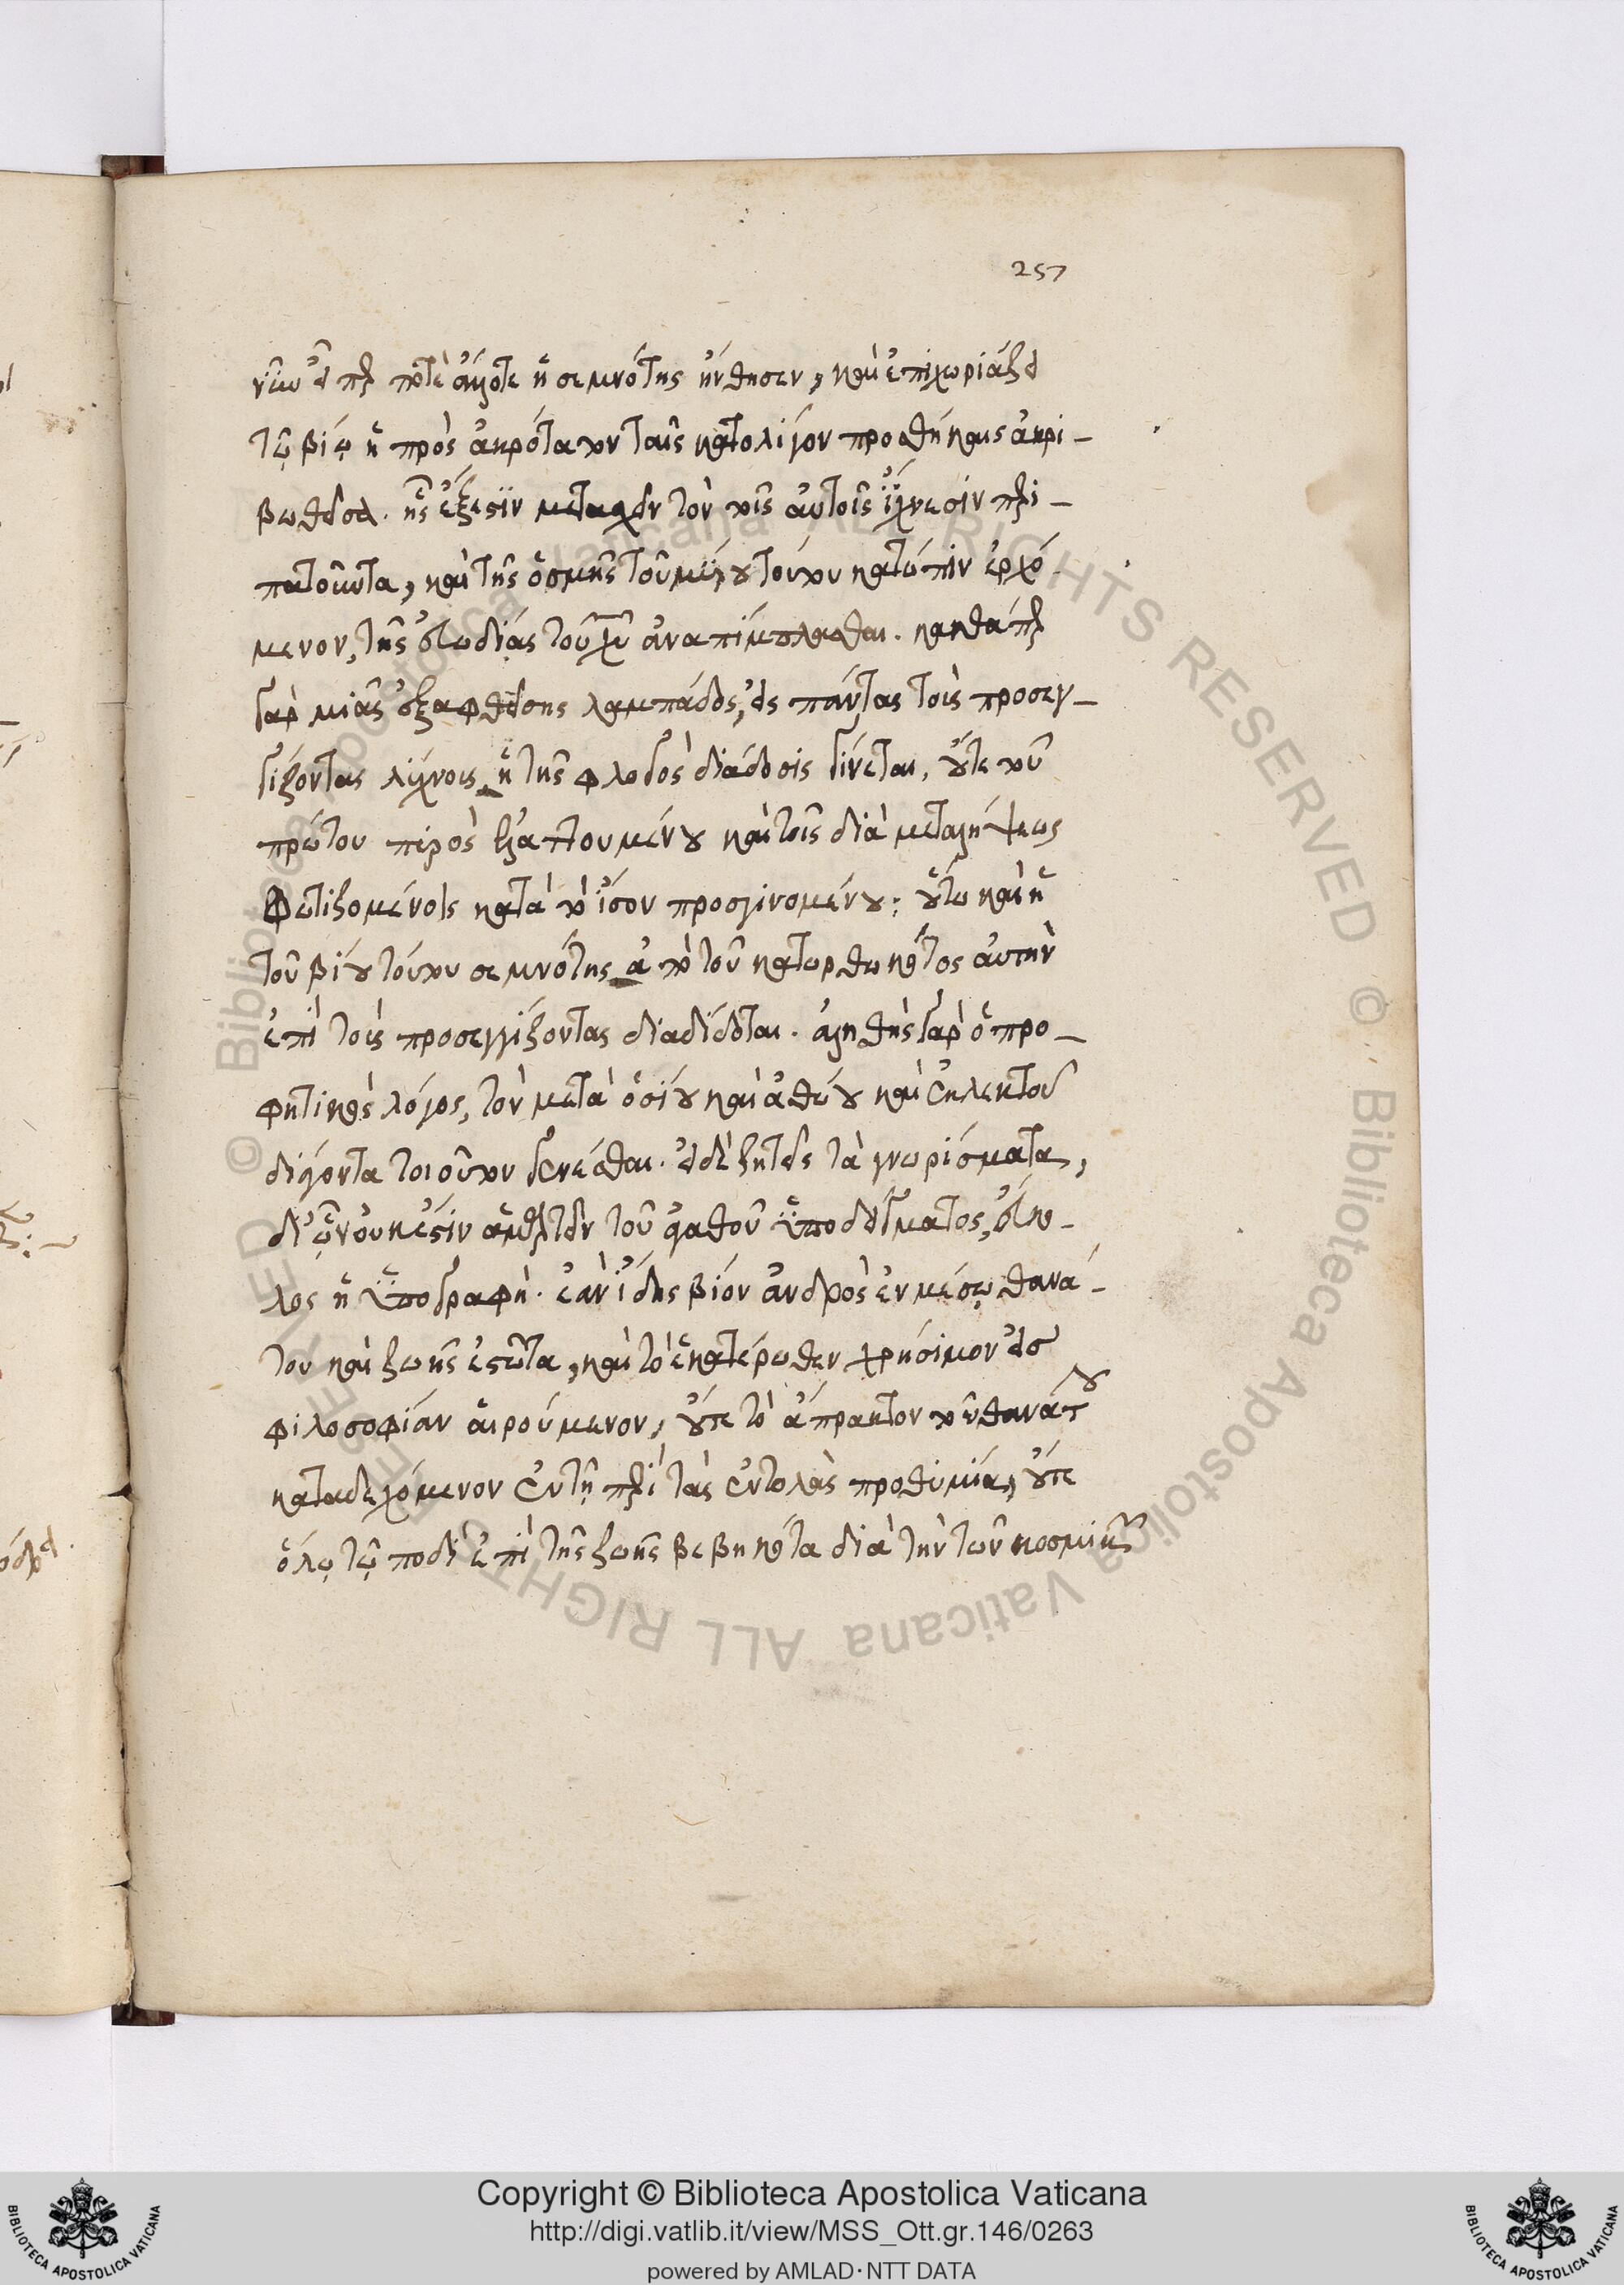 257
νῦν εἴπερ ποτὲ ἄλλοτε ἡ σεμνότης ἤνθησεν, καὶ ἐπιχωριάζει
τῷ βίῳ ἡ πρὸς ἀκρότατον ταῖς κατολίγον προσθήκαις ἀκρι-
βωθεῖσα. ἧς ἔξεστιν μετασχεῖν τὸν τοῖς αὐτοῖς ἴχνεσιν περι-
πατοῦντα, καὶ τῆς ὀσμῆς τοῦ μύρου τούτου κατόπιν ἐρχό-
μενον, τῆς εὐωδίας τοῦ χυ ἀναπίμπλασθαι. καθάπερ
γὰρ μιᾶς ἐξαφθείσης λαμπάδος, εἰς πάντας τοὺς προσεγ-
γίζοντας λύχνους ἡ τῆς φλογὸς διάδοσις γίνεται, οὔτε τοῦ
πρώτου πυρὸς ἐλαττουμένου καὶ τοῖς διὰ μεταλήψεως
φωτιζομένοις κατὰ τὸ ἴσον προσγινομένου· οὕτω καὶ ἡ
τοῦ βίου τούτου σεμνότης ἀπὸ τοῦ κατωρθωκότος αὐτὴν
ἐπὶ τοὺς προσεγγίζοντας διαδίδοται. ἀληθὴς γὰρ ὁ προ-
φητικὸς λόγος, τὸν μετὰ ὁσίου καὶ ἀθώου καὶ ἐκλεκτοῦ
διάγοντα τοιοῦτον γενέσθαι. εἰ δὲ ζητεῖς τὰ γνωρίσματα,
δι' ὧν οὐκ ἔστιν ἁμαρτεῖν τοῦ ἀγαθοῦ ὑποδείγματος, εὔκο-
λος ἡ ὑπογραφή. ἐὰν ἴδης βίον ἀνδρὸς ἐν μέσῳ θανά-
του καὶ ζωῆς ἑστῶτα, καὶ τὸ ἑκατέρωθεν χρήσιμον εἰς
φιλοσοφίαν αἱρούμενον, οὔτε τὸ ἄπρακτον τοῦ θανάτου
καταδεχόμενον ἐν τῇ περὶ τὰς ἐντολὰς προθυμίᾳ, οὔτε
ὅλῳ τῷ ποδὶ ἐπὶ τῆς ζωῆς βεβηκότα διὰ τὴν τῶν κοσμικῶν
Copyright © Biblioteca Apostolica Vaticana
http://digi.vatlib.it/view/MSS_Ott.gr.146/0263
powered by AMLAD·NTT DATA